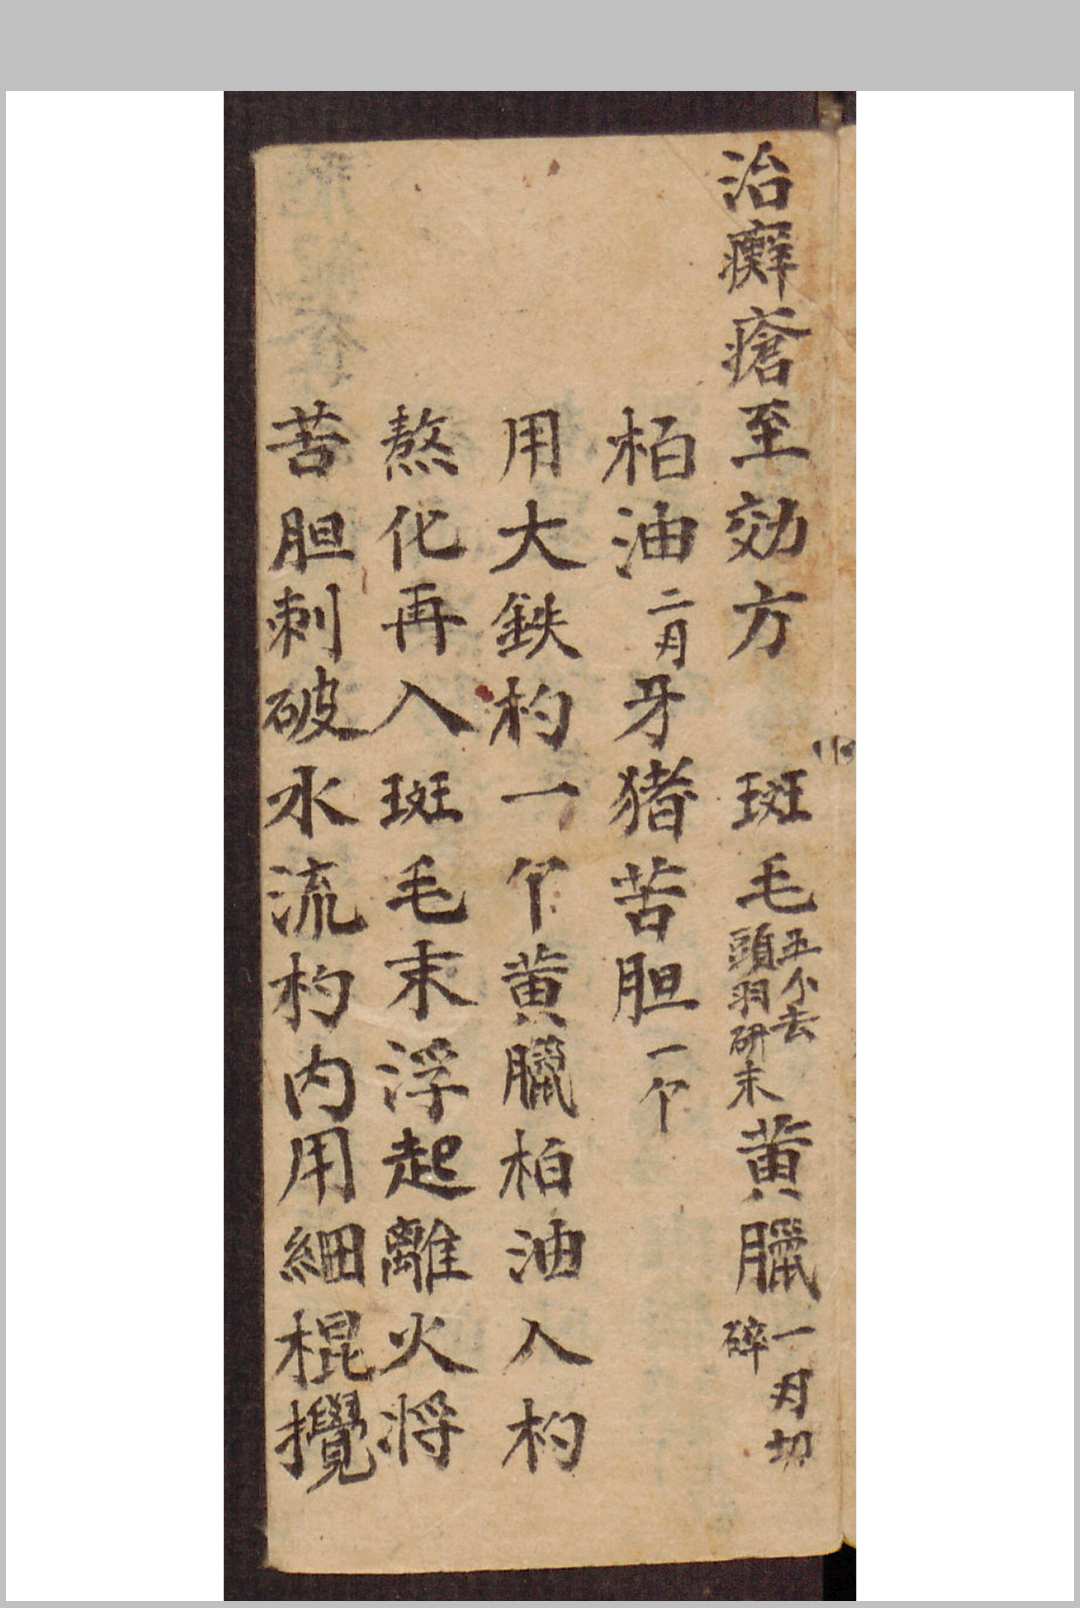 治癬瘡至効方　斑毛五个去頭羽研末黄臘一月切碎
柏油二月牙猪苦胆一个
用大鉄杓一个黄臘柏油入杓
熬化再入斑毛末浮起離火将
苦胆刺破水流杓内用細棍攪